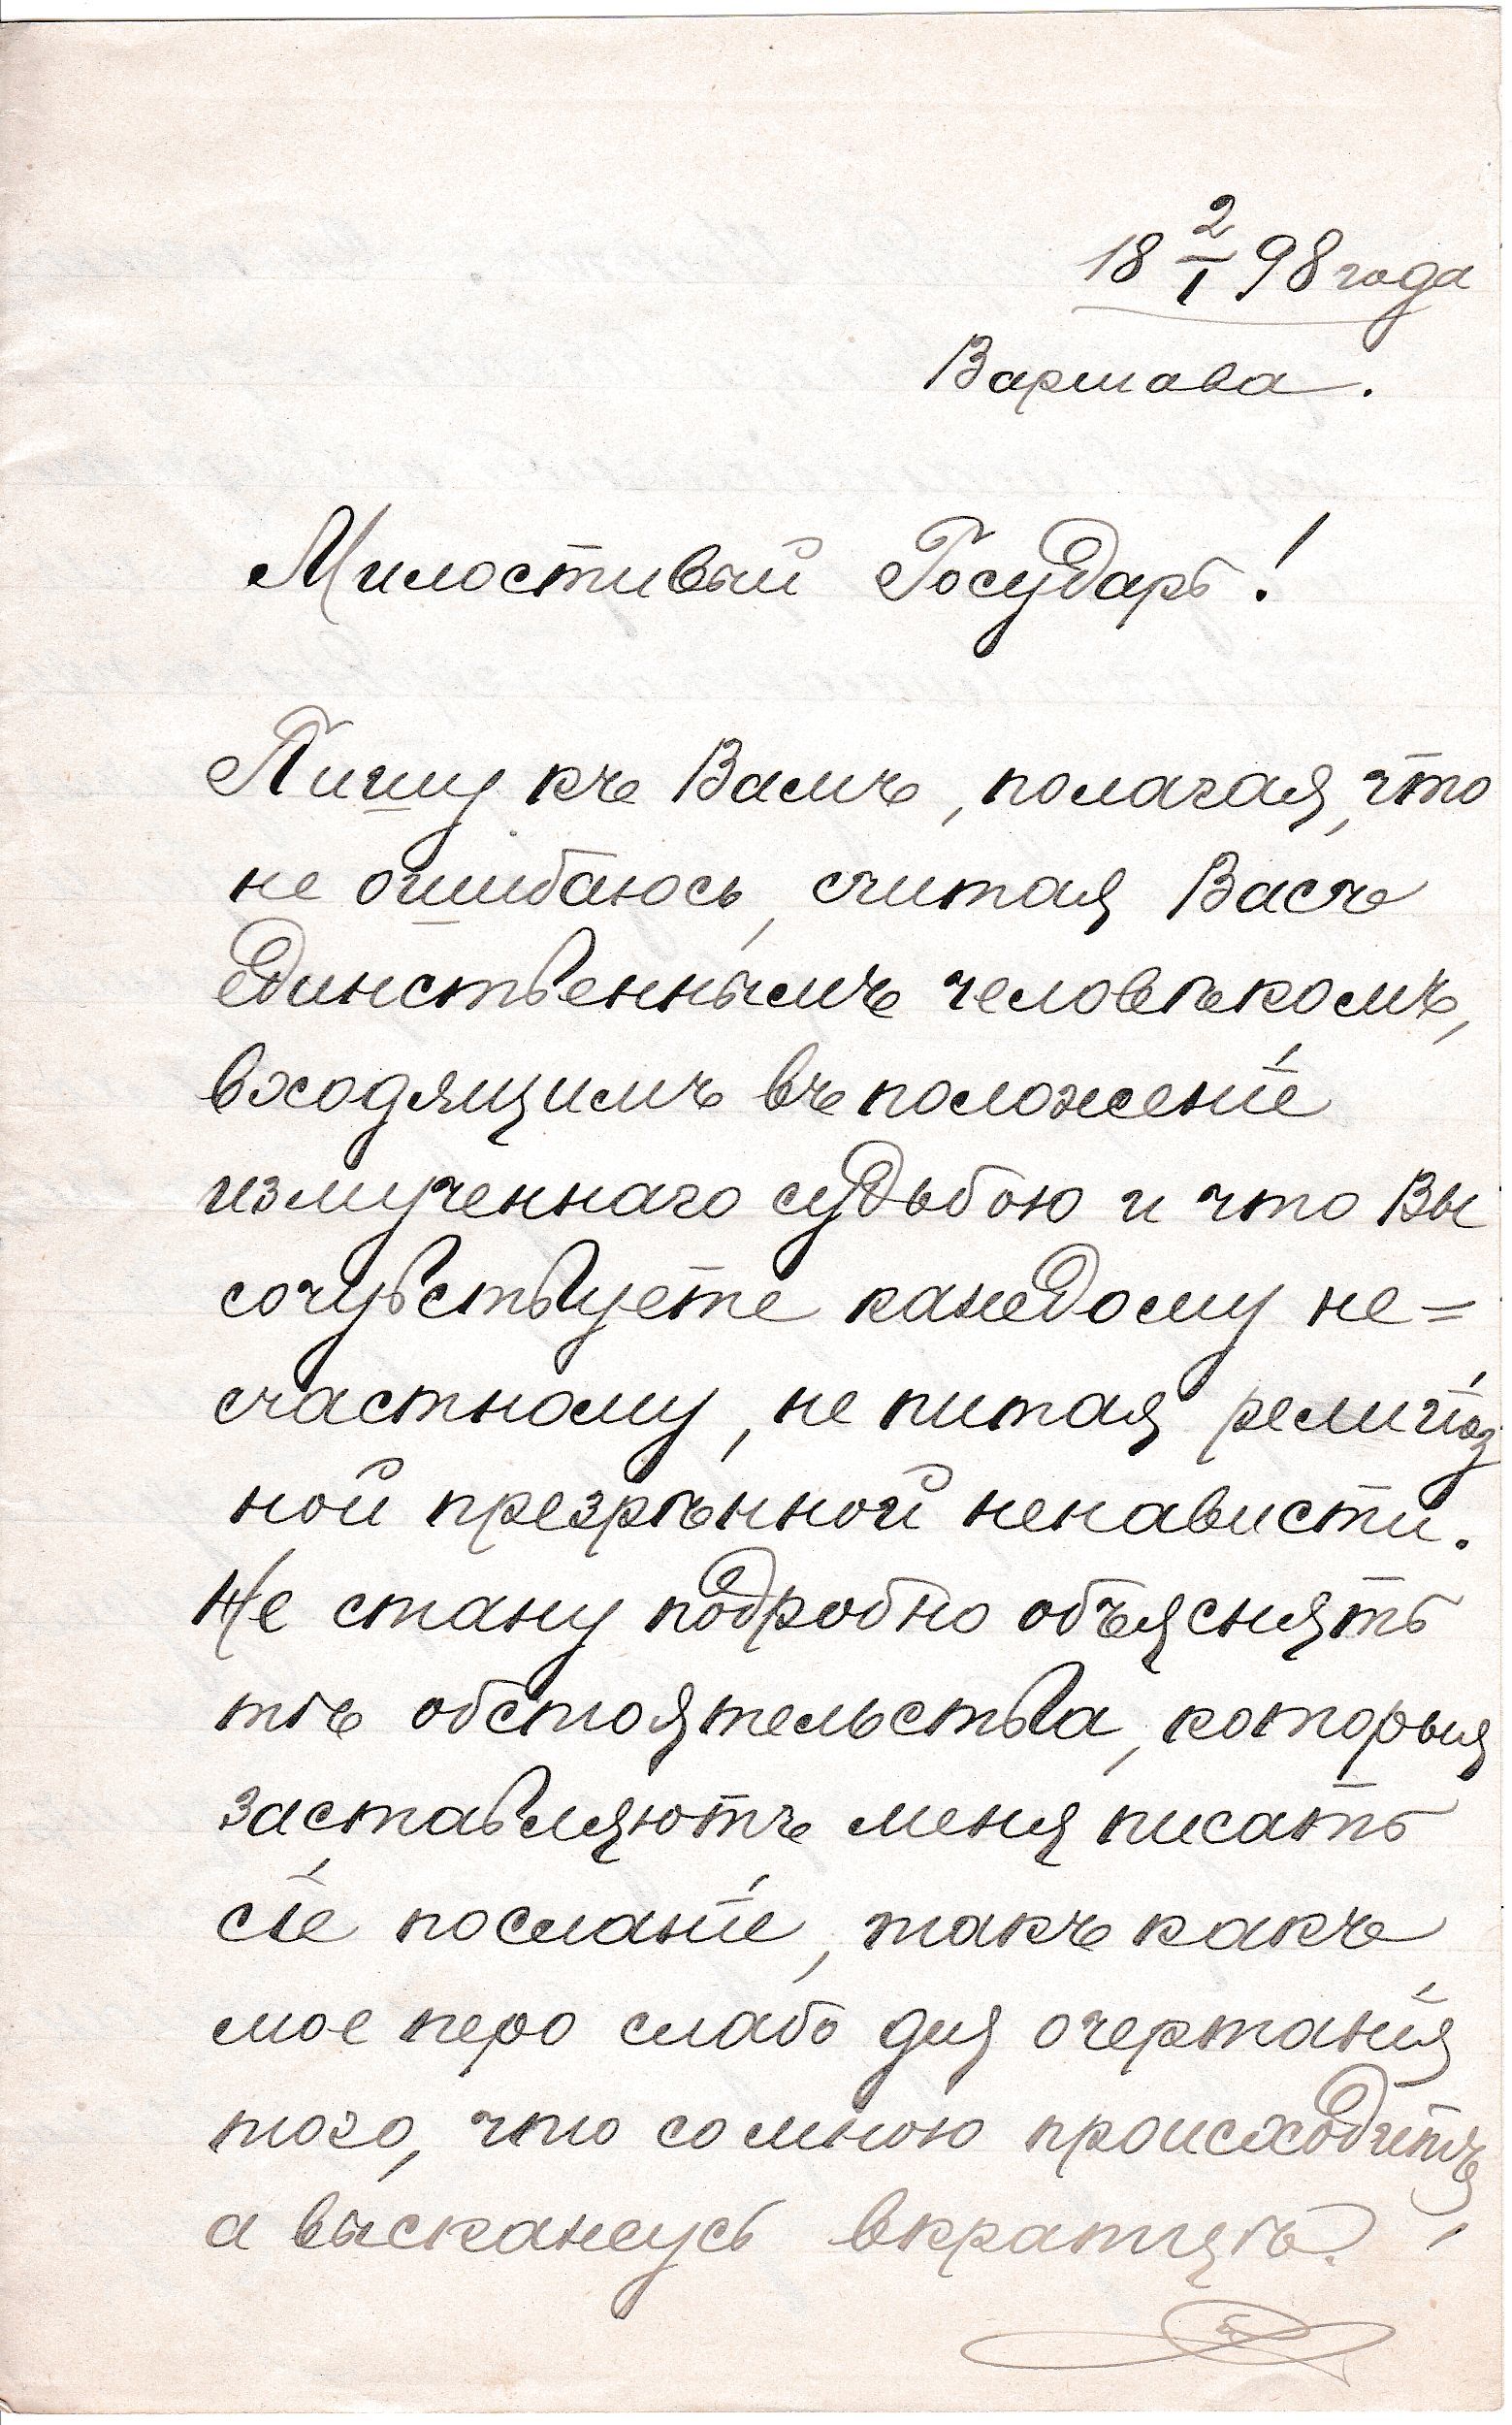 18 2/1 98 года
Варшава.
Милостивый Государь!
Пишу къ Вамъ, полагая, что
не ошибаюсь, считая Васъ
единственнымъ человѣкомъ,
входящимъ въ положеніе
измученнаго судьбою и что Вы
сочувствуете каждому не=
счастному, не питая религіоз
ной презрѣнной ненависти.
Не стану подробно объяснять
тѣ обстоятельства, которыя
заставляютъ меня писать
сіе посланіе, такъ какъ
мое перо слабо для очертанія
того, что со мною происходитъ,
а выскажусь вкратцѣ.